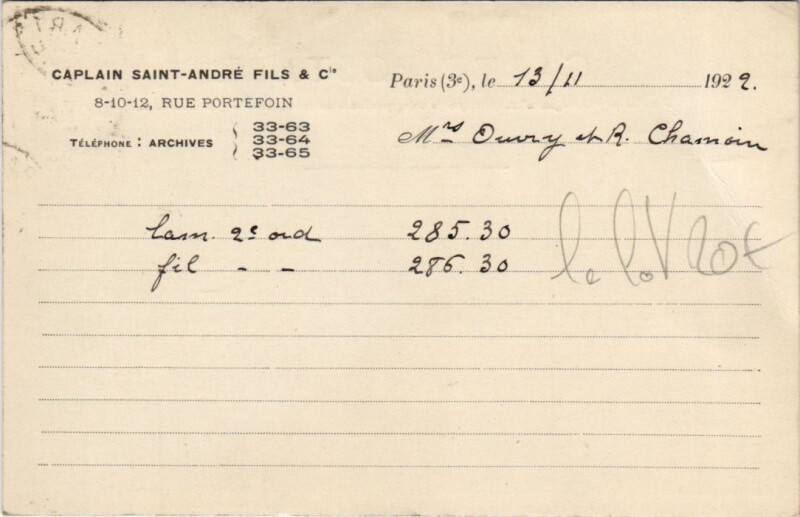 CAPLAIN SAINT-ANDRÉ FILS & Cie
8-10-12, RUE PORTEFOIN
TÉLÉPHONE : ARCHIVES
33-63
33-64
33-65
Paris (3e), le 13/11 1922.
Mrs Ouvry et R. Chamoin
Lam. 2e ord 285.30
fil - - 286.30